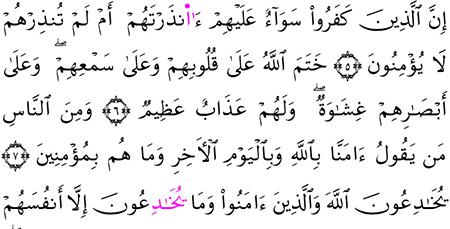 إِنَّ ٱلَّذِينَ كَفَرُوا۟ سَوَآءٌ عَلَيْهِمْ ءَا۬نذَرْتَهُمْ أَمْ لَمْ تُنذِرْهُمْ
لَا يُؤْمِنُونَ ۝٥ خَتَمَ ٱللَّهُ عَلَىٰ قُلُوبِهِمْ وَعَلَىٰ سَمْعِهِمْ ۖ وَعَلَىٰ
أَبْصَٰرِهِمْ غِشَٰوَةٌ ۖ وَلَهُمْ عَذَابٌ عَظِيمٌ ۝٦ وَمِنَ ٱلنَّاسِ
مَن يَقُولُ ءَامَنَّا بِٱللَّهِ وَبِٱلْيَوْمِ ٱلْأَخِرِ وَمَا هُم بِمُؤْمِنِينَ ۝٧
يُخَٰدِعُونَ ٱللَّهَ وَٱلَّذِينَ ءَامَنُوا۟ وَمَا يُخَٰدِعُونَ إِلَّا أَنفُسَهُمْ